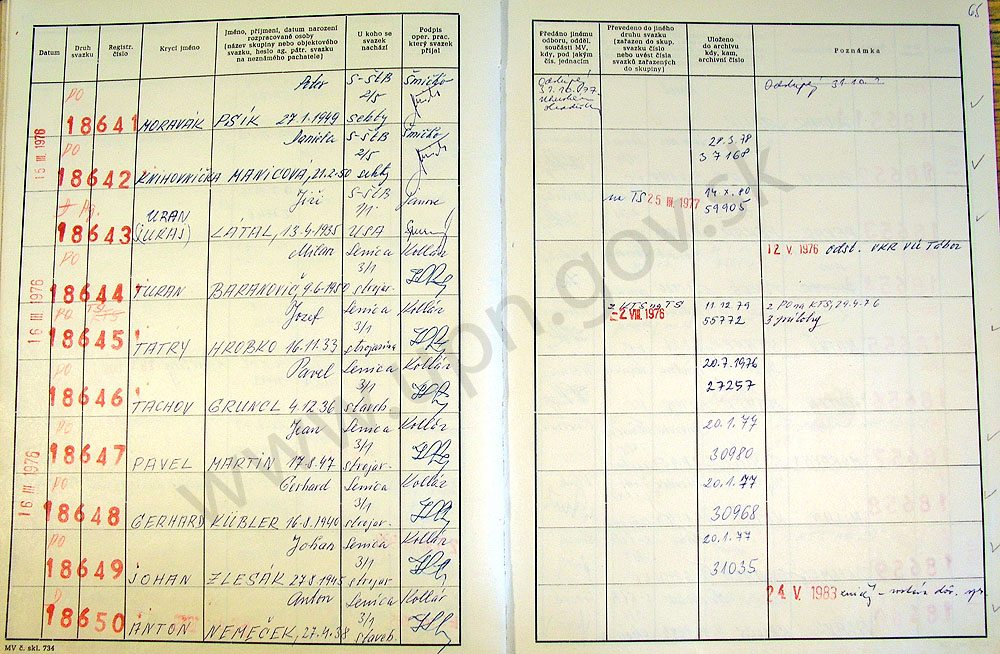 65
Datum
Druh svazku
Registr. číslo
Krycí jméno
Jméno, příjmení, datum narození
rozpracované osoby
(název skupiny nebo objektového
svazku, heslo ag. pátr. svazku
na neznámého pachatele)
U koho se
svazek
nachází
Podpis
oper. prac.
který svazek
přijal
Předáno jinému
odboru, odděl.
součásti MV,
kdy, pod jakým
čís. jednacím
Převedeno do jiného
druhu svazku
(zařazen do skup.
svazku číslo
nebo uvést čísla
svazků zařazených
do skupiny)
Uloženo
do archivu
kdy, kam,
archivní číslo
Poznámka
15 III. 1976
PO
18641
MORAVÁK
Peter
PŠÍK 27.1.1949
S-ŠtB
2/5
Šmičko
31.10.77
31.10.
PO
18642
KNIHOVNÍČKA
Daniela
MANICOVÁ, 21.2.50
S-ŠtB
2/5
Šmičko
28.3.78
37168
18643
URAN
(JURAJ)
Jiří
LÁTAL, 13.4.1935
S-ŠtB
USA
na TS 25 III. 1977
14.X.80
59905
12 V. 1976 odst. VKR VÚ Tábor
16 III 1976
PO
18644
TURAN
Milan
BARANOVIČ 9.6.1950
Senica
3/1
strojár.
Kollár
PO
18645
TATRY
Jozef
HROBKO 16.11.33
Senica
3/1
strojárina
Kollár
z KTS na TS
-2 VIII. 1976
11.12.79
55772
z PO na KTS, 29.4.76
3 prílohy
PO
18646
TACHOV
Pavel
GRUNCL 4.12.36
Senica
3/1
staveb.
Kollár
20.7.1976
27257
16 III 1976
PO
18647
PAVEL
Jean
MARTIN 17.8.47
Senica
3/1
strojár.
Kollár
20.1.77
30980
PO
18648
GERHARD
Gerhard
KÜBLER 16.8.1940
Senica
3/1
strojár.
Kollár
20.1.77
30968
PO
18649
JOHAN
Johan
ZLESÁK 27.8.1945
Senica
3/1
strojár.
Kollár
20.1.77
31035
18650
ANTON
Anton
NEMEČEK, 27.4.38
Senica
3/1
staveb.
Kollár
24 V. 1983
MV č. skl. 734
www.upn.gov.sk